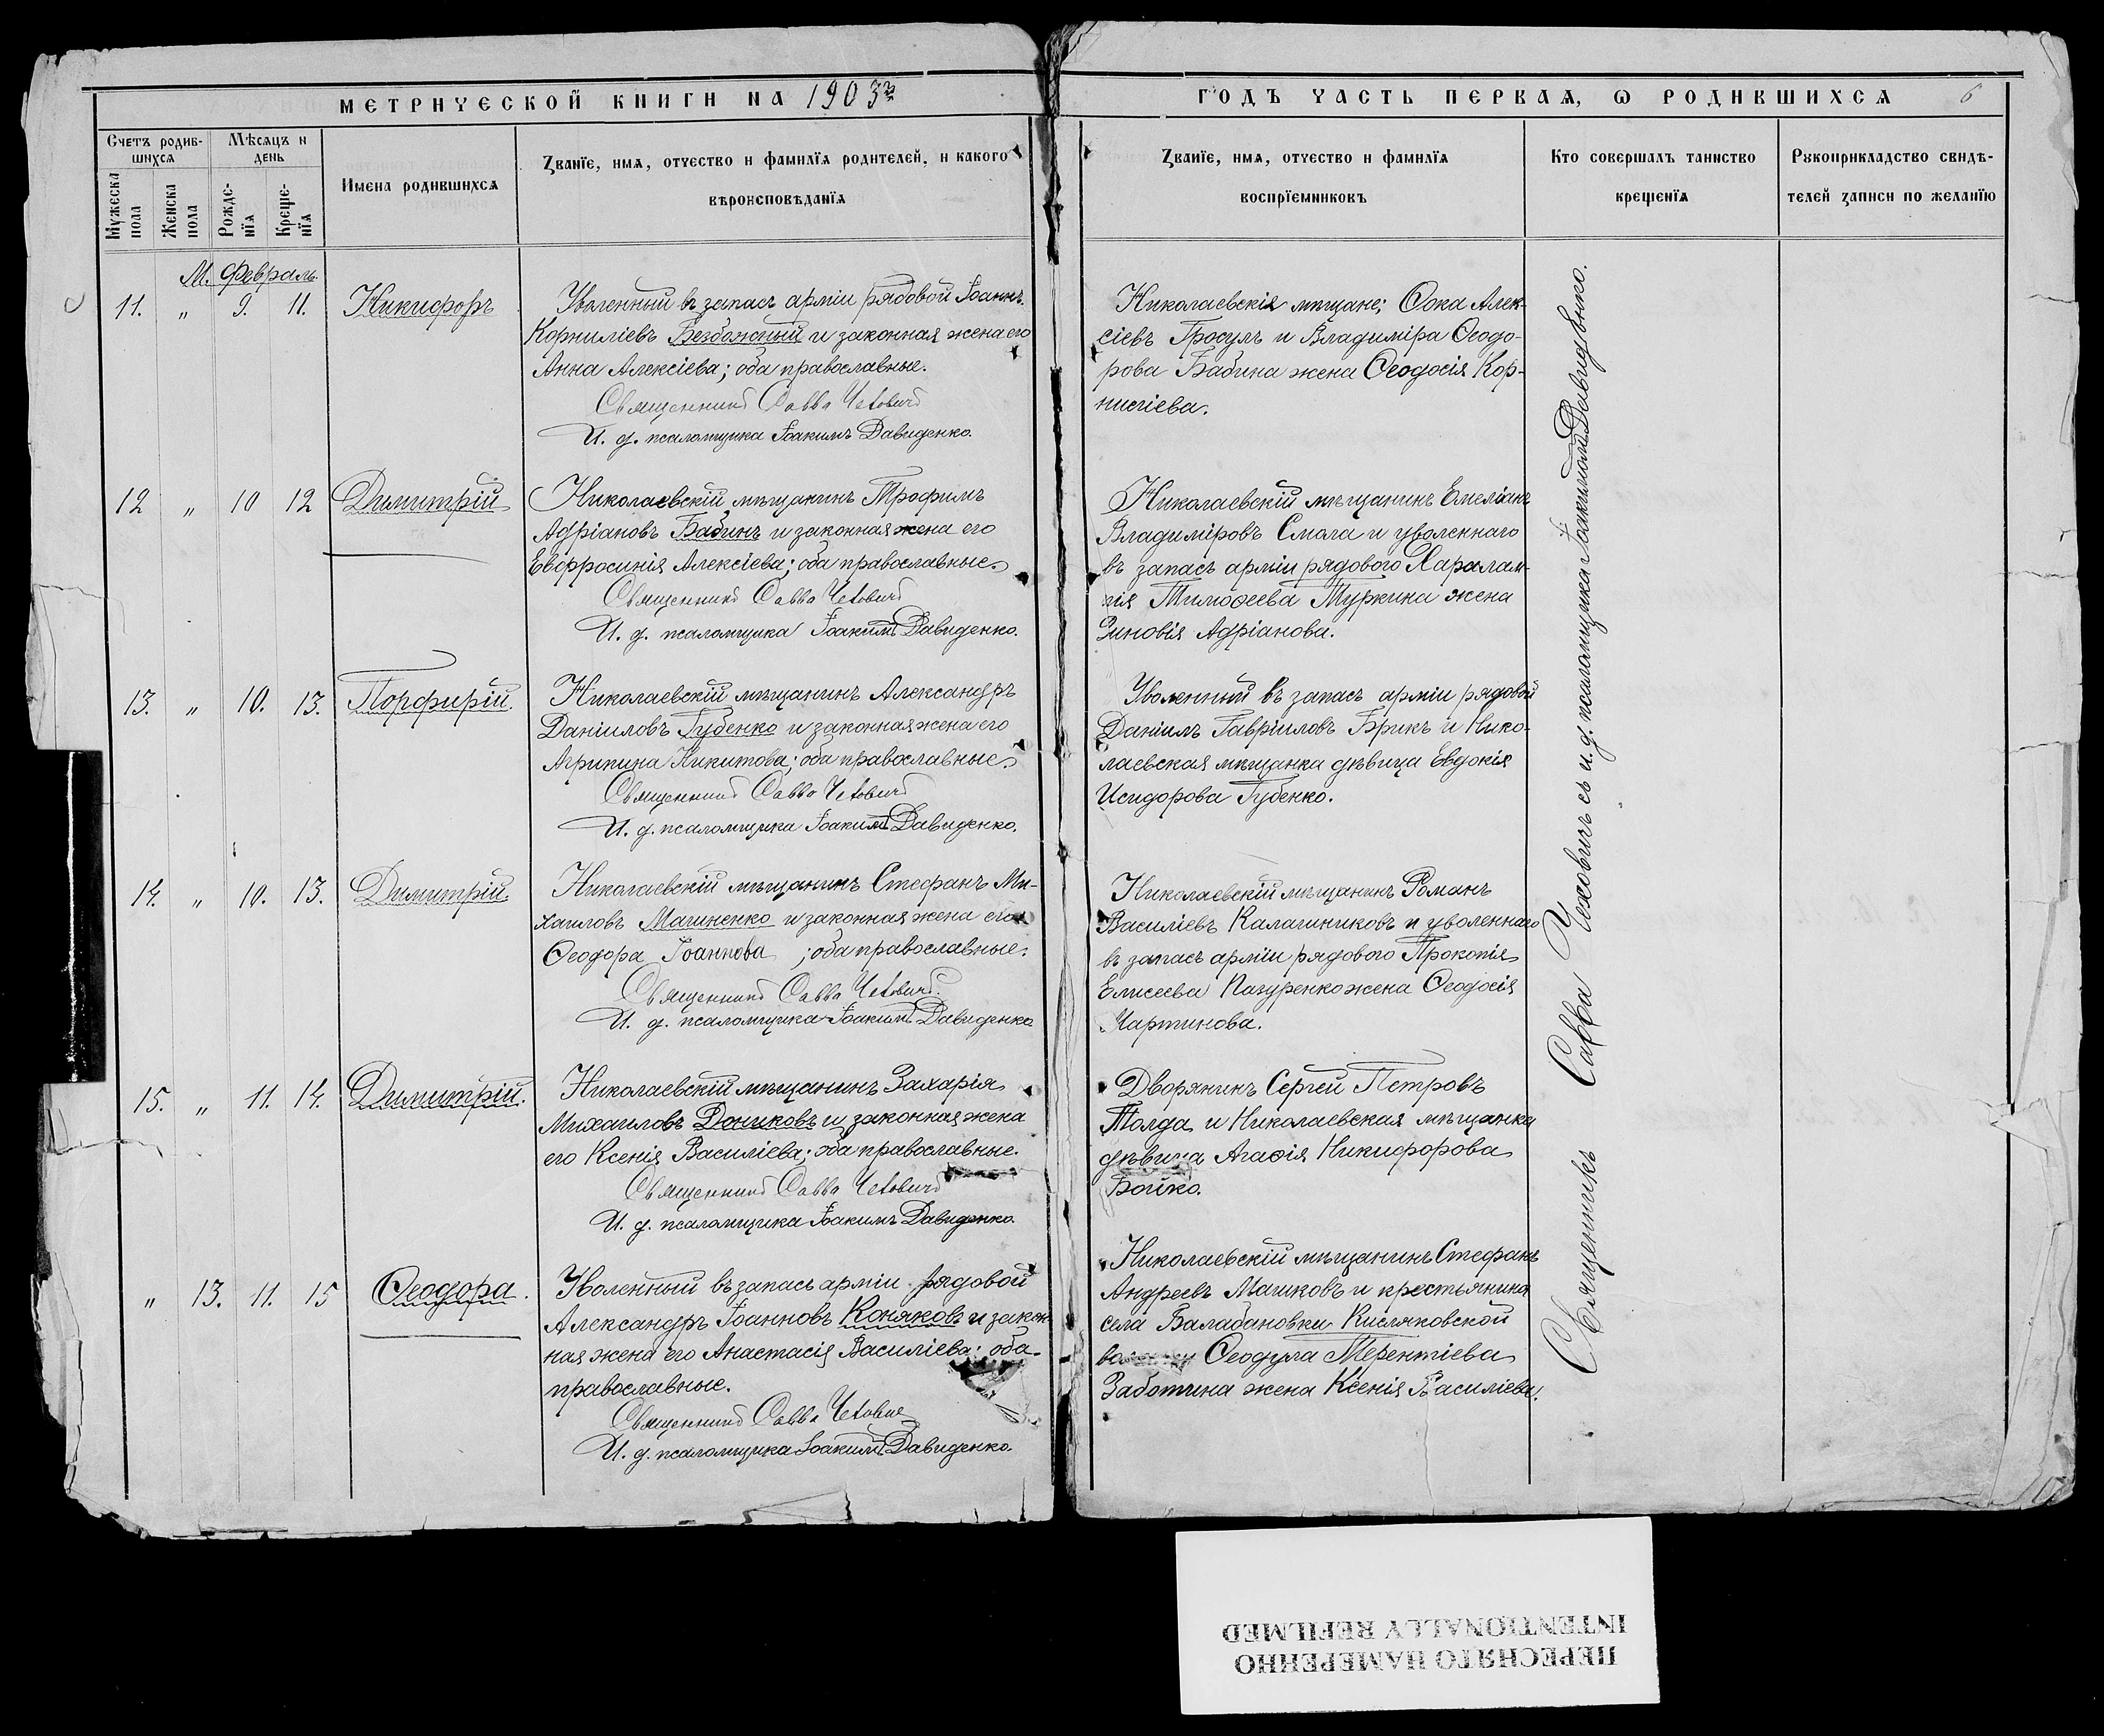 МЕТРИЧЕСКОЙ КНИГИ НА 1903й
Счетъ родив-
шихся
Мѣсяцъ и
день
Мужеска
пола
Женска
пола
Рожде-
нїя
Креще-
нїя
Имена родившихся
Званїе, имя, отчество и фамилїя родителей, и какого
вѣроисповѣданїя
М. Февраль.
11. „ 9. 11. Никифоръ
Уволенный въ запасъ арміи рядовой Іоаннъ
Корниліевъ Безбожный и законная жена его
Анна Алексіева; оба православные.
Священникъ Савва Чеховичъ
И. д. псаломщика Іоакимъ Давиденко.
12 „ 10 12 Димитрій
Николаевскій мѣщанинъ Трофимъ
Адріановъ Бабинъ и законная жена его
Евфросинія Алексіева; оба православные.
Священникъ Савва Чеховичъ
И. д. псаломщика Іоакимъ Давиденко.
13. „ 10. 13. Порфирій.
Николаевскій мѣщанинъ Александръ
Даніиловъ Губенко и законная жена его
Агрипина Никитова; оба православные.
Священникъ Савва Чеховичъ
И. д. псаломщика Іоакимъ Давиденко.
14. „ 10. 13. Димитрій.
Николаевскій мѣщанинъ Стефанъ Ми-
хаиловъ Магиненко и законная жена его
Ѳеодора Іоаннова ; оба православные.
Священникъ Савва Чеховичъ.
И. д. псаломщика Іоакимъ Давиденко
15. „ 11. 14. Димитрій.
Николаевскій мѣщанинъ Захарія
Михаиловъ Дониковъ и законная жена
его Ксенія Василіева; оба православные.
Священникъ Савва Чеховичъ
И. д. псаломщика Іоакимъ Давиденко.
„ 13. 11. 15 Ѳеодора.
Уволенный въ запасъ арміи рядовой
Александръ Іоанновъ Коняковъ и закон
ная жена его Анастасія Василіева; оба
православные.
Священникъ Савва Чеховичъ
И. д. псаломщика Іоакимъ Давиденко.
ГОДЪ ЧАСТЬ ПЕРВАЯ, Ѡ РОДИВШИХСЯ 6
Званїе, имя, отчество и фамилїя
воспрїемниковъ
Кто совершалъ таинство
крещенїя
Рукоприкладство свидѣ-
телей записи по желанїю
Николаевскія мѣщане; Ѳока Алек-
сіевъ Гросулъ и Владиміра Ѳеодо-
рова Бабина жена Ѳеодосія Кор-
ниліева.
Николаевскій мѣщанинъ Емеліанъ
Владиміровъ Смола и уволеннаго
въ запасъ арміи рядового Харалам-
пія Тимоѳеева Туркина жена
Зиновія Адріанова.
Уволенный въ запасъ арміи рядовой
Даніилъ Гавріиловъ Брикъ и Нико-
лаевская мѣщанка дѣвица Евдокія
Исидорова Губенко.
Николаевскій мѣщанинъ Романъ
Василіевъ Калашниковъ и уволеннаго
въ запасъ арміи рядового Прокопія
Елисеева Пазуренко жена Ѳеодосія
Мартинова.
Дворянинъ Сергей Петровъ
Толда и Николаевская мѣщанка
дѣвица Агаѳія Никифорова
Бойко.
Николаевскій мѣщанинъ Стефанъ
Андреевъ Машковъ и крестьянина
села Балабановки Кисляковской
Ѳеодула Терентіева
Заботина жена Ксенія Василіева.
Священникъ Савва Чеховичъ съ и. д. псаломщика Іоакимомъ Давиденко.
ПЕРЕСНЯТО НАМЕРЕННО
INTENTIONALLY REFILMED